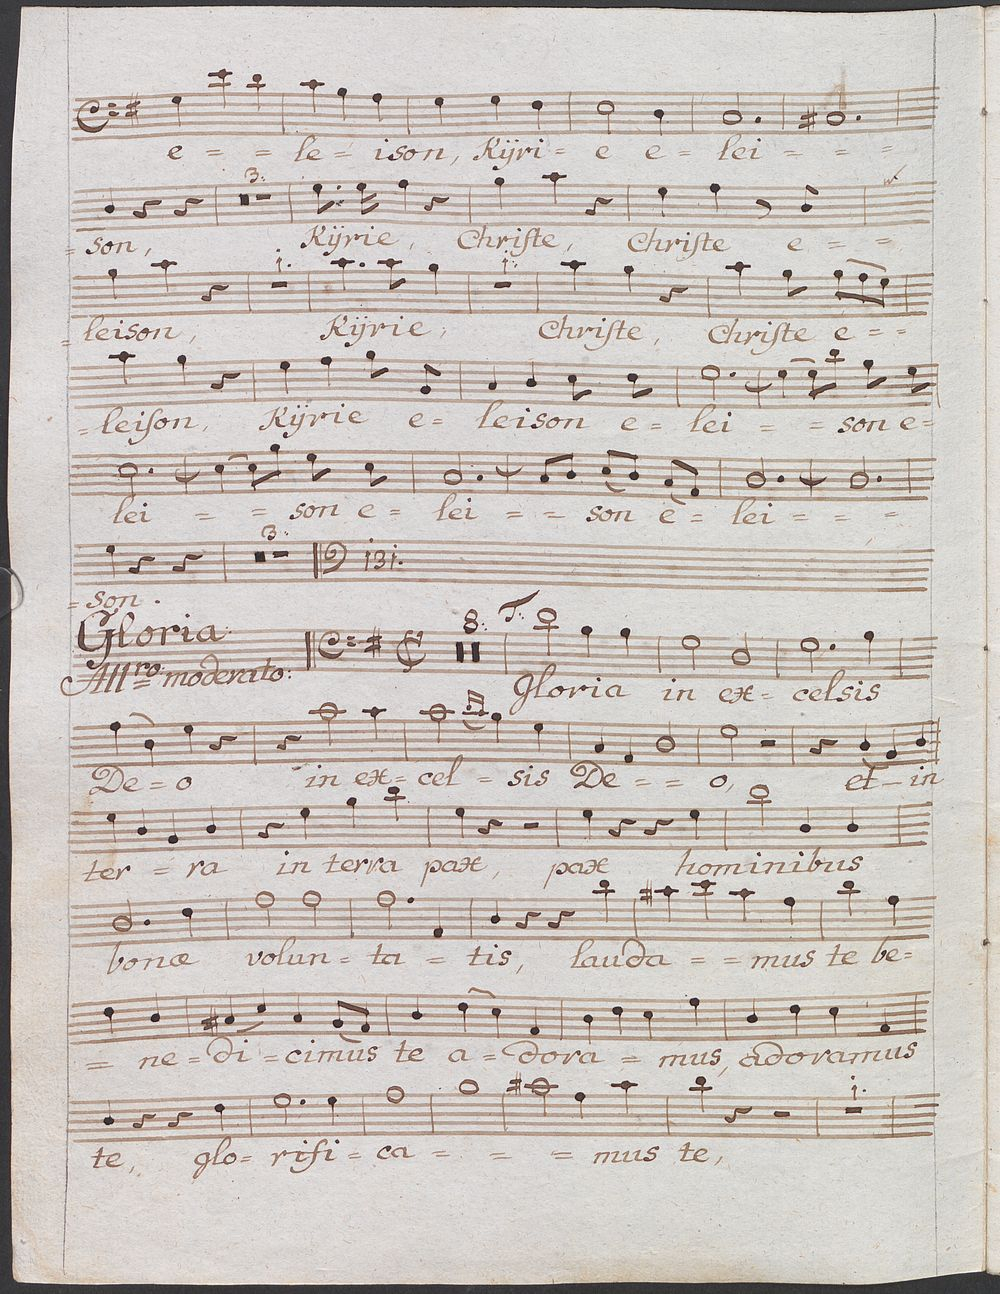 e = = le = ison, Kÿri = e e = lei = = =
3:
= son, Kÿrie, Christe, Christe e = =
1. 1.
= leison, Kÿrie, Christe, Christe e = =
= leison, Kÿrie e = leison e = lei = = son e =
lei = = son e = lei = = son e = lei = = =
3: 131.
= son.
Gloria 8: T.
Allro: moderato: Gloria in ex = celsis
De = o in ex = cel = sis De = = o, et in
ter = ra in terra pax, pax hominibus
bonæ volun = ta = tis, lauda = = mus te be =
= ne = di = cimus te a = dora = mus, adoramus
1.
te, glo = rifi = ca = = = mus te,